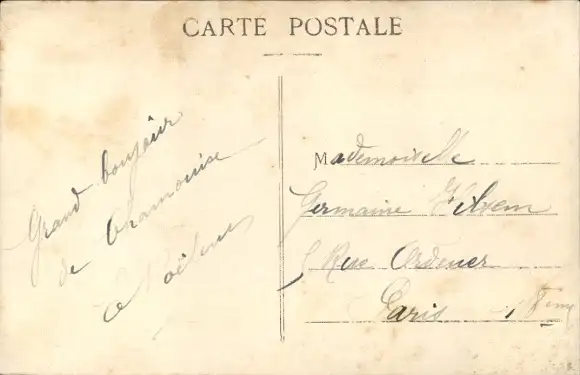 CARTE POSTALE
Grand bonjour
de Chamonise
Mademoiselle
Germaine
5 Rue Ordener
Paris 18ème